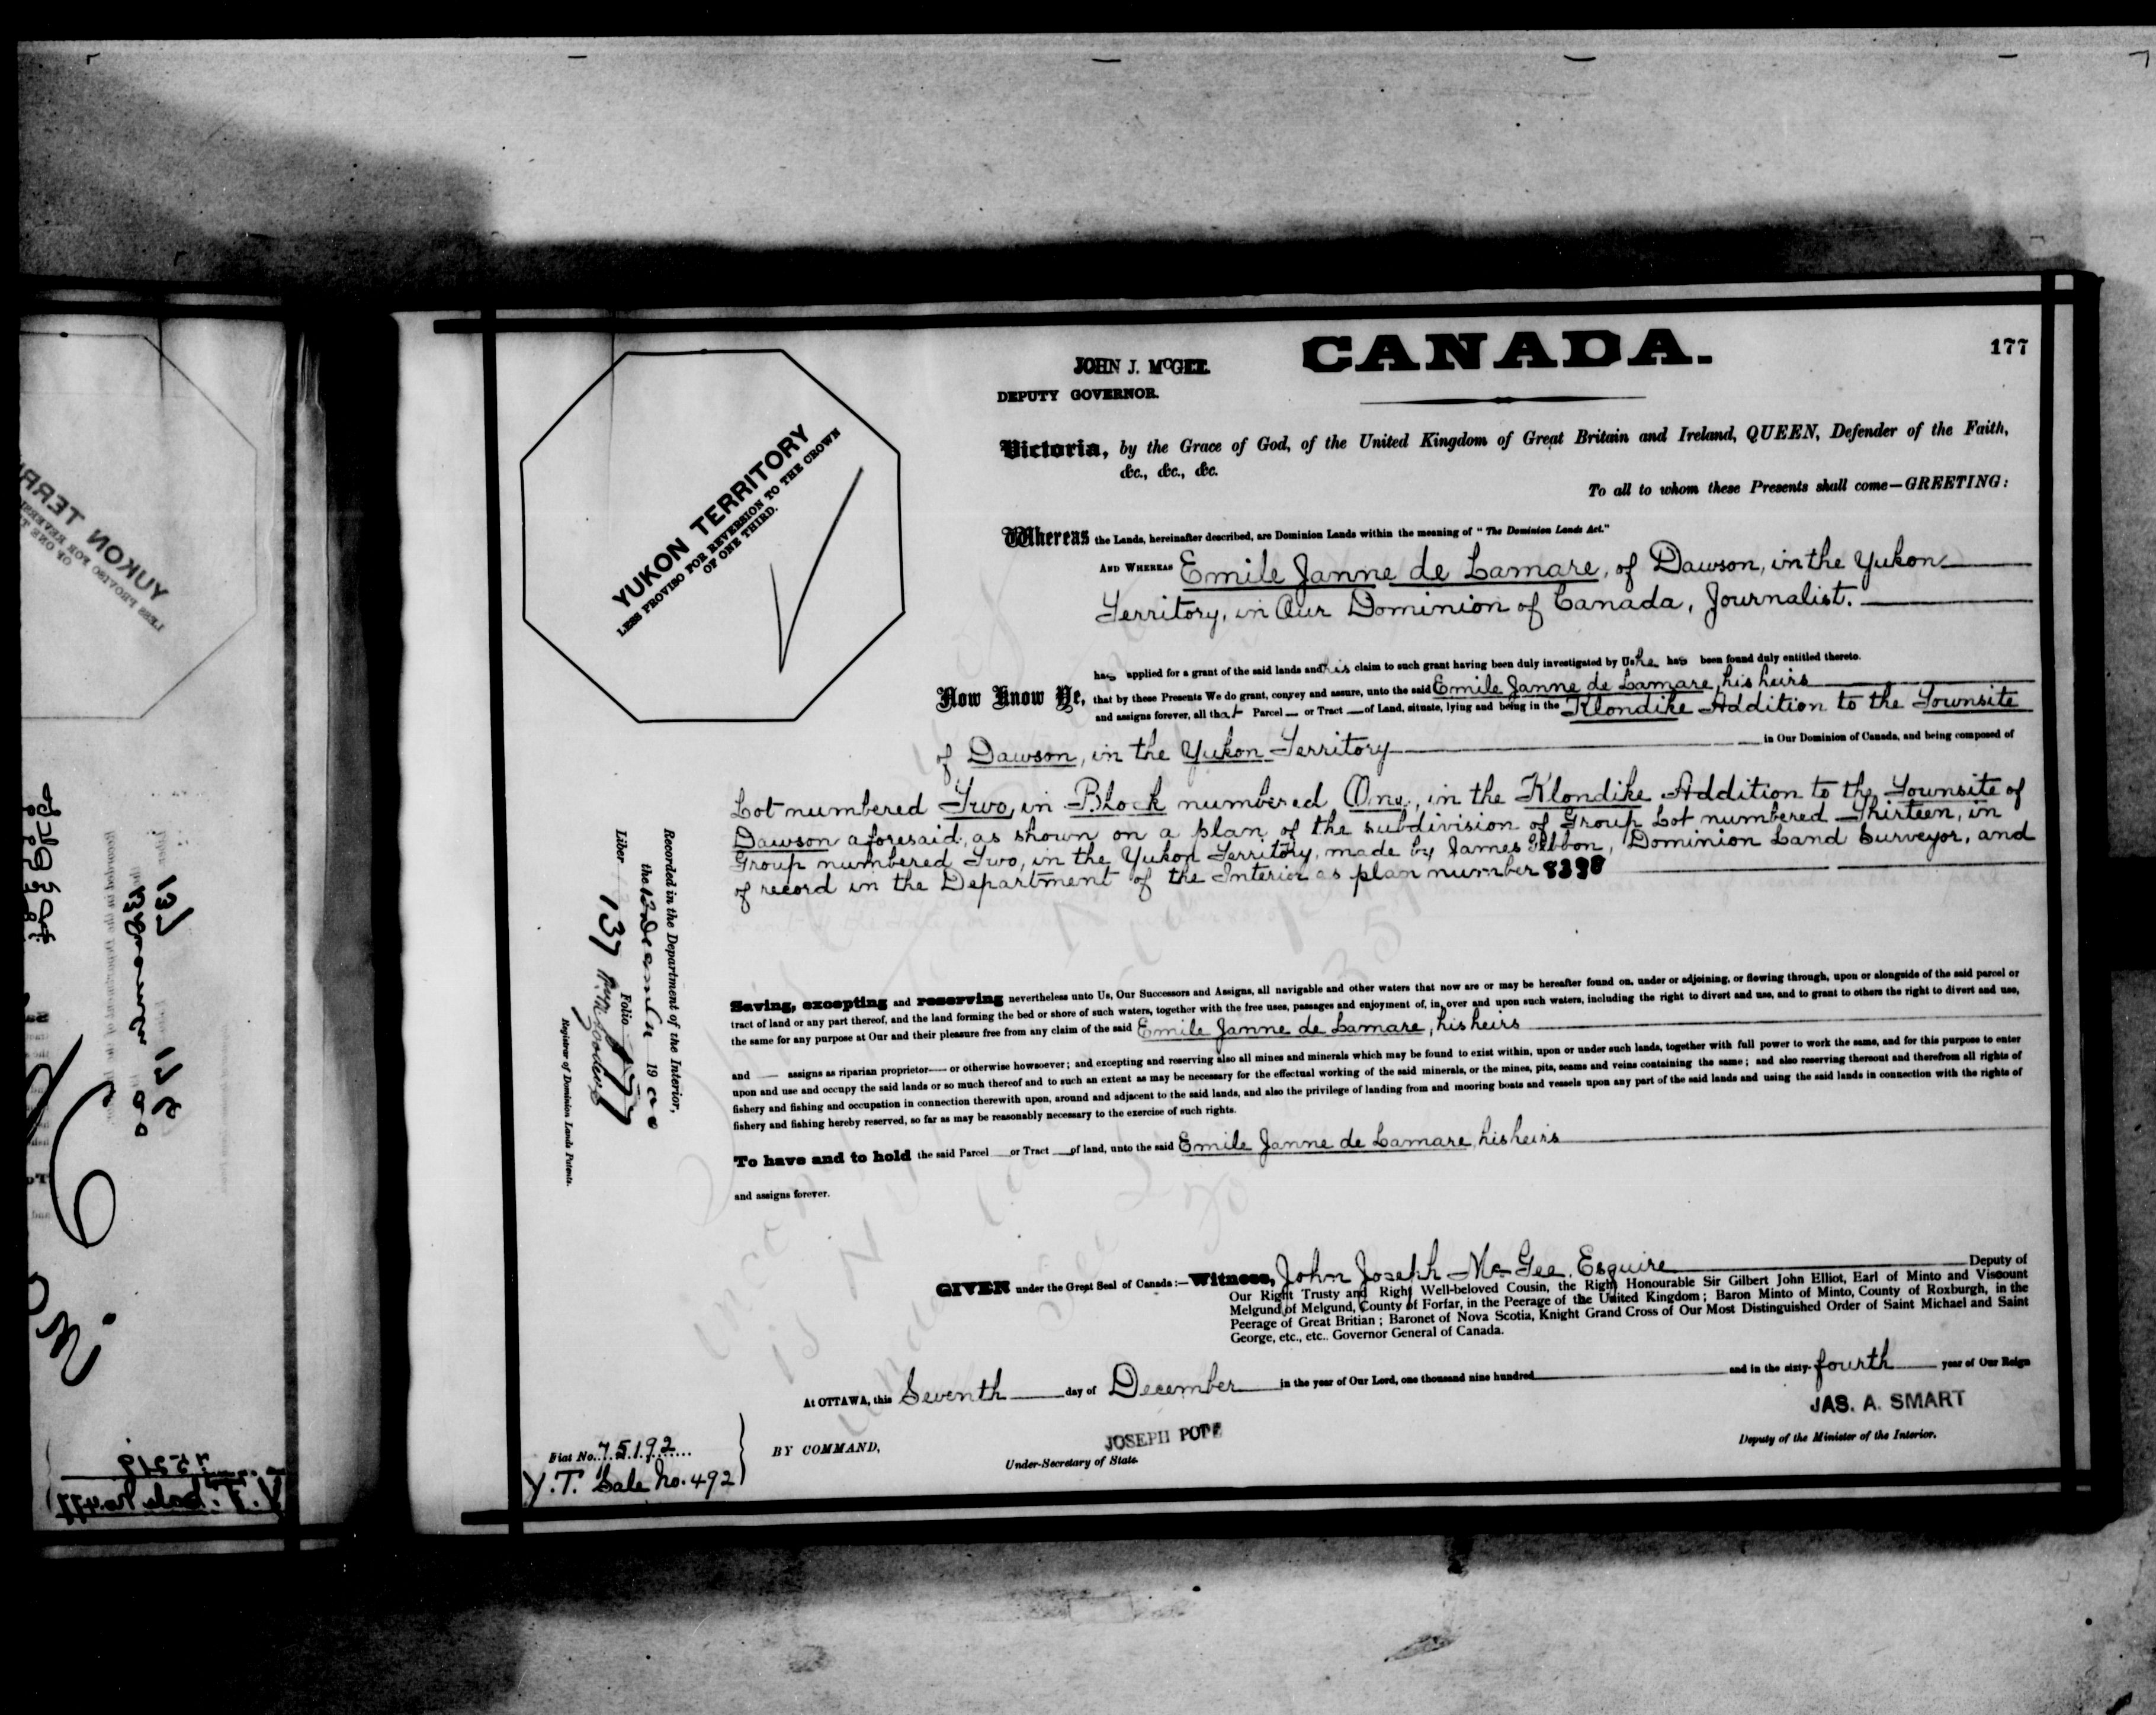 CANADA.
177
JOHN J. McGEE.
DEPUTY GOVERNOR.
YUKON TERRITORY
LESS PROVISO FOR REVERSION TO THE CROWN
OF ONE THIRD.
Victoria, by the Grace of God, of the United Kingdom of Great Britain and Ireland, QUEEN, Defender of the Faith,
&c., &c., &c.
To all to whom these Presents shall come—GREETING:
Whereas the Lands, hereinafter described, are Dominion Lands within the meaning of "The Dominion Lands Act."
AND WHEREAS Emile Janne de Lamare, of Dawson, in the Yukon
Territory, in Our Dominion of Canada, Journalist.
has applied for a grant of the said lands and his claim to such grant having been duly investigated by Us he has been found duly entitled thereto.
Now Know Ye, that by these Presents We do grant, convey and assure, unto the said Emile Janne de Lamare, his heirs
and assigns forever, all that Parcel or Tract of Land, situate, lying and being in the Klondike Addition to the Townsite
of Dawson, in the Yukon Territory in Our Dominion of Canada, and being composed of
Lot numbered Two, in Block numbered One, in the Klondike Addition to the Townsite of
Dawson aforesaid, as shown on a plan of the subdivision of Group Lot numbered Thirteen, in
Group numbered Two, in the Yukon Territory, made by James Gibbon, Dominion Land Surveyor, and
of record in the Department of the Interior as plan number
Saving, excepting and reserving nevertheless unto Us, Our Successors and Assigns, all navigable and other waters that now are or may be hereafter found on, under or adjoining, or flowing through, upon or alongside of the said parcel or
tract of land or any part thereof, and the land forming the bed or shore of such waters, together with the free uses, passages and enjoyment of, in, over and upon such waters, including the right to divert and use, and to grant to others the right to divert and use,
the same for any purpose at Our and their pleasure free from any claim of the said Emile Janne de Lamare, his heirs
and assigns as riparian proprietor or otherwise howsoever; and excepting and reserving also all mines and minerals which may be found to exist within, upon or under such lands, together with full power to work the same, and for this purpose to enter
upon and use and occupy the said lands or so much thereof and to such an extent as may be necessary for the effectual working of the said minerals, or the mines, pits, seams and veins containing the same; and also reserving thereout and therefrom all rights of
fishery and fishing and occupation in connection therewith upon, around and adjacent to the said lands, and also the privilege of landing from and mooring boats and vessels upon any part of the said lands and using the said lands in connection with the rights of
fishery and fishing hereby reserved, so far as may be reasonably necessary to the exercise of such rights.
To have and to hold the said Parcel or Tract of land, unto the said Emile Janne de Lamare, his heirs
and assigns forever.
Recorded in the Department of the Interior,
the 12 December 1900
Liber 137 Folio 177
Registrar of Dominion Lands Patents.
GIVEN under the Great Seal of Canada:—Witness, John Joseph McGee, Esquire Deputy of
Our Right Trusty and Right Well-beloved Cousin, the Right Honourable Sir Gilbert John Elliot, Earl of Minto and Viscount
Melgund of Melgund, County of Forfar, in the Peerage of the United Kingdom; Baron Minto of Minto, County of Roxburgh, in the
Peerage of Great Britian; Baronet of Nova Scotia, Knight Grand Cross of Our Most Distinguished Order of Saint Michael and Saint
George, etc., etc.. Governor General of Canada.
At OTTAWA, this Seventh day of December in the year of Our Lord, one thousand nine hundred and in the sixty-fourth year of Our Reign
JAS. A. SMART
Deputy of the Minister of the Interior.
BY COMMAND,
JOSEPH POPE
Under-Secretary of State.
Fiat No. 75192
Y.T. Sale No. 492